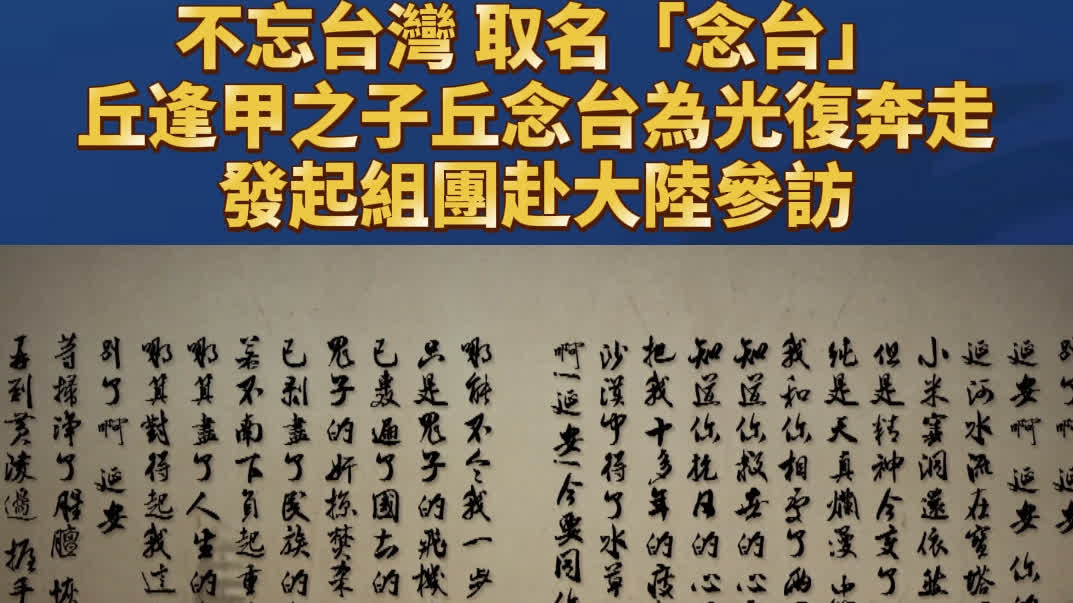 不忘台灣 取名「念台」
丘逢甲之子丘念台為光復奔走
發起組團赴大陸參訪
延安啊 延安 你
延河水流在寶塔
小米窰洞還依然
但是精神今变了
純是天真爛漫
我和你相處了兩
知道你救世的心
知道你抗日的心
把我十多年的疲
沙漠中得了水草
啊！延安！今要同你
哪能不令我一步
只是鬼子的飛機
已轟遍了國土的
鬼子的奸掠焚
已剥盡了民族的
若不南下負起重
哪算盡了人生的
哪算對得起我
别了啊 延安
等掃淨了腥膻 恢
再到黃陵邊 握手